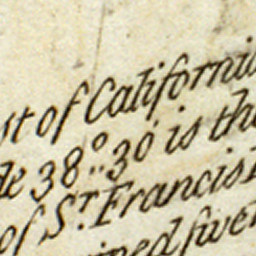 st of California
de 38°:30' is the
of Sr. Francis
five